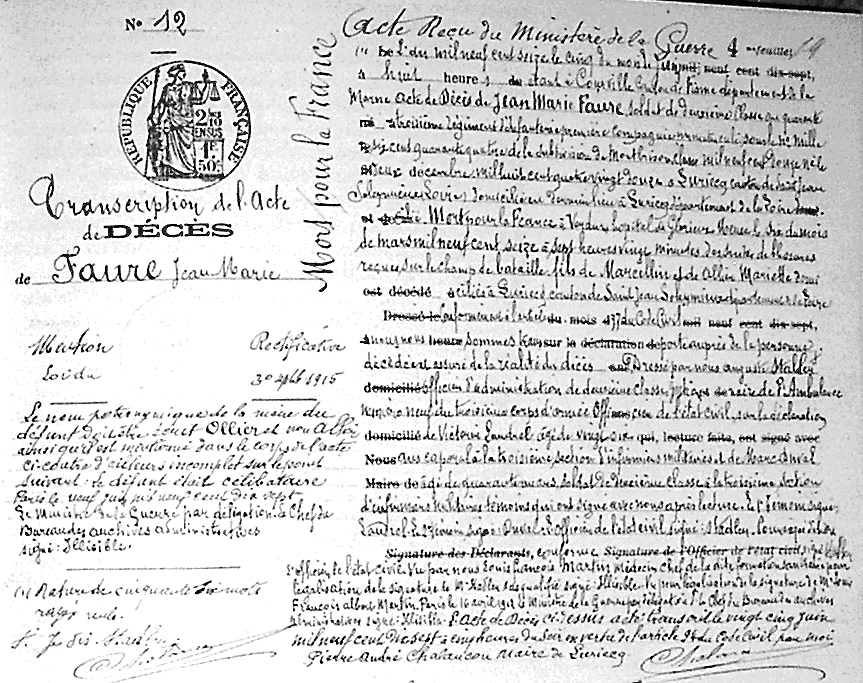 N° 12
RÉPUBLIQUE FRANÇAISE
2/10
EN SUS
1F
50c
Transcription de l'Acte
de DÉCÈS
de FAURE Jean Marie
Mention Rectificative
Loi du 30 7bre 1915
Le nom patronymique de la mère du
défunt doit être écrit Ollier et non
ainsi qu'il est mentionné dans le corps de l'acte
ci-contre d'ailleurs incomplet sur le point
suivant: le défunt était célibataire
Paris le neuf juin mil neuf cent dix sept
Le Ministre de la Guerre par délégation le Chef du
Bureau des archives administratives
signé: Illisible.
(1) Rature de cinquante mots
rayés nuls.
Mort pour la France
Acte Reçu du Ministère de la Guerre 4
(1) L'an mil neuf cent seize le cinq du mois neuf cent dix-sept,
à huit heures étant à Courville canton de Fismes département de la
Marne Acte de Décès de Jean Marie Faure, soldat de deuxième Classe au quarante
troisième Régiment d'Infanterie première Compagnie immatriculé sous le N° mille
six cent quarante quatre de la subdivision de Montbrison classe mil neuf cent douze né le
deux décembre mil huit cent quatre vingt douze à Luriecq canton de Saint Jean
Soleymieux Loire domicilié en dernier lieu à Luriecq département de la Loire
Mort pour la France à Verdun hopital de Glorieux Meuse le six du mois
de mars mil neuf cent seize à sept heures vingt minutes des suites de blessures
reçues sur le champ de bataille fils de Marcellin et de Mariette domi
est décédé ciliés à Luriecq canton de Saint Jean Soleymieux département de la Loire
Dressé le Conformément à l'article du mois 77 du Code Civil mil neuf cent dix-sept,
à nous nous heure sommes sur la déclaration de porté auprès de la personne
décédée et assuré de la réalité du décès Dressé par nous Auguste Stadler
domicilié Officier d'administration de deuxième Classe de l'Ambulance
neuf du troisième corps d'armée Officier de l'état civil, sur la déclaration
domicilié de Victoire Laudrel âgé de vingt six qui, lecture faite, ont signé avec
Nous ans caporal à la troisième section d'infirmiers militaires et de Marc Duval
Maire de âgé de quarante un ans, soldat de deuxième classe à la troisième section
d'infirmiers militaires témoins qui ont signé avec nous après lecture. Le 1er témoin signé:
Laudrel. Le témoin signé: Duval. L'Officier de l'état civil signé: Stadler. Pour copie
Signature des Déclarants, conforme Signature de l'Officier de l'état civil,
L'officier de l'état Civil. Vu par nous Louis François Martin Médecin Chef de la dite formation sanitaire pour
légalisation de la signature de Mr Stadler signé: Illisible. Vu pour légalisation de la signature de Mr
François Albert Martin. Paris le 10 avril le Ministre de la Guerre par délégation le Chef du Bureau des archives
administratives signé: Illisible. L'acte de Décès ci-dessus a été transcrit le vingt cinq juin
mil neuf cent dix sept à cinq heures du soir en vertu de l'article 94 du Code Civil par moi
Pierre André Chalancon Maire de Luriecq